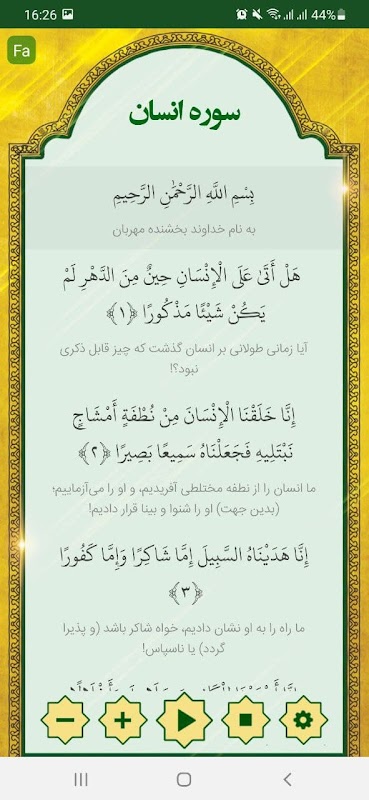 16:26
44%
Fa
سوره انسان
بِسْمِ اللَّهِ الرَّحْمَٰنِ الرَّحِيمِ
به نام خداوند بخشنده مهربان
هَلْ أَتَىٰ عَلَى الْإِنْسَانِ حِينٌ مِنَ الدَّهْرِ لَمْ
يَكُنْ شَيْئًا مَذْكُورًا ﴿١﴾
آیا زمانی طولانی بر انسان گذشت که چیز قابل ذکری
نبود؟!
إِنَّا خَلَقْنَا الْإِنْسَانَ مِنْ نُطْفَةٍ أَمْشَاجٍ
نَبْتَلِيهِ فَجَعَلْنَاهُ سَمِيعًا بَصِيرًا ﴿٢﴾
ما انسان را از نطفه مختلطی آفریدیم، و او را می‌آزماییم؛
(بدین جهت) او را شنوا و بینا قرار دادیم!
إِنَّا هَدَيْنَاهُ السَّبِيلَ إِمَّا شَاكِرًا وَإِمَّا كَفُورًا
﴿٣﴾
ما راه را به او نشان دادیم، خواه شاکر باشد (و پذیرا
گردد) یا ناسپاس!